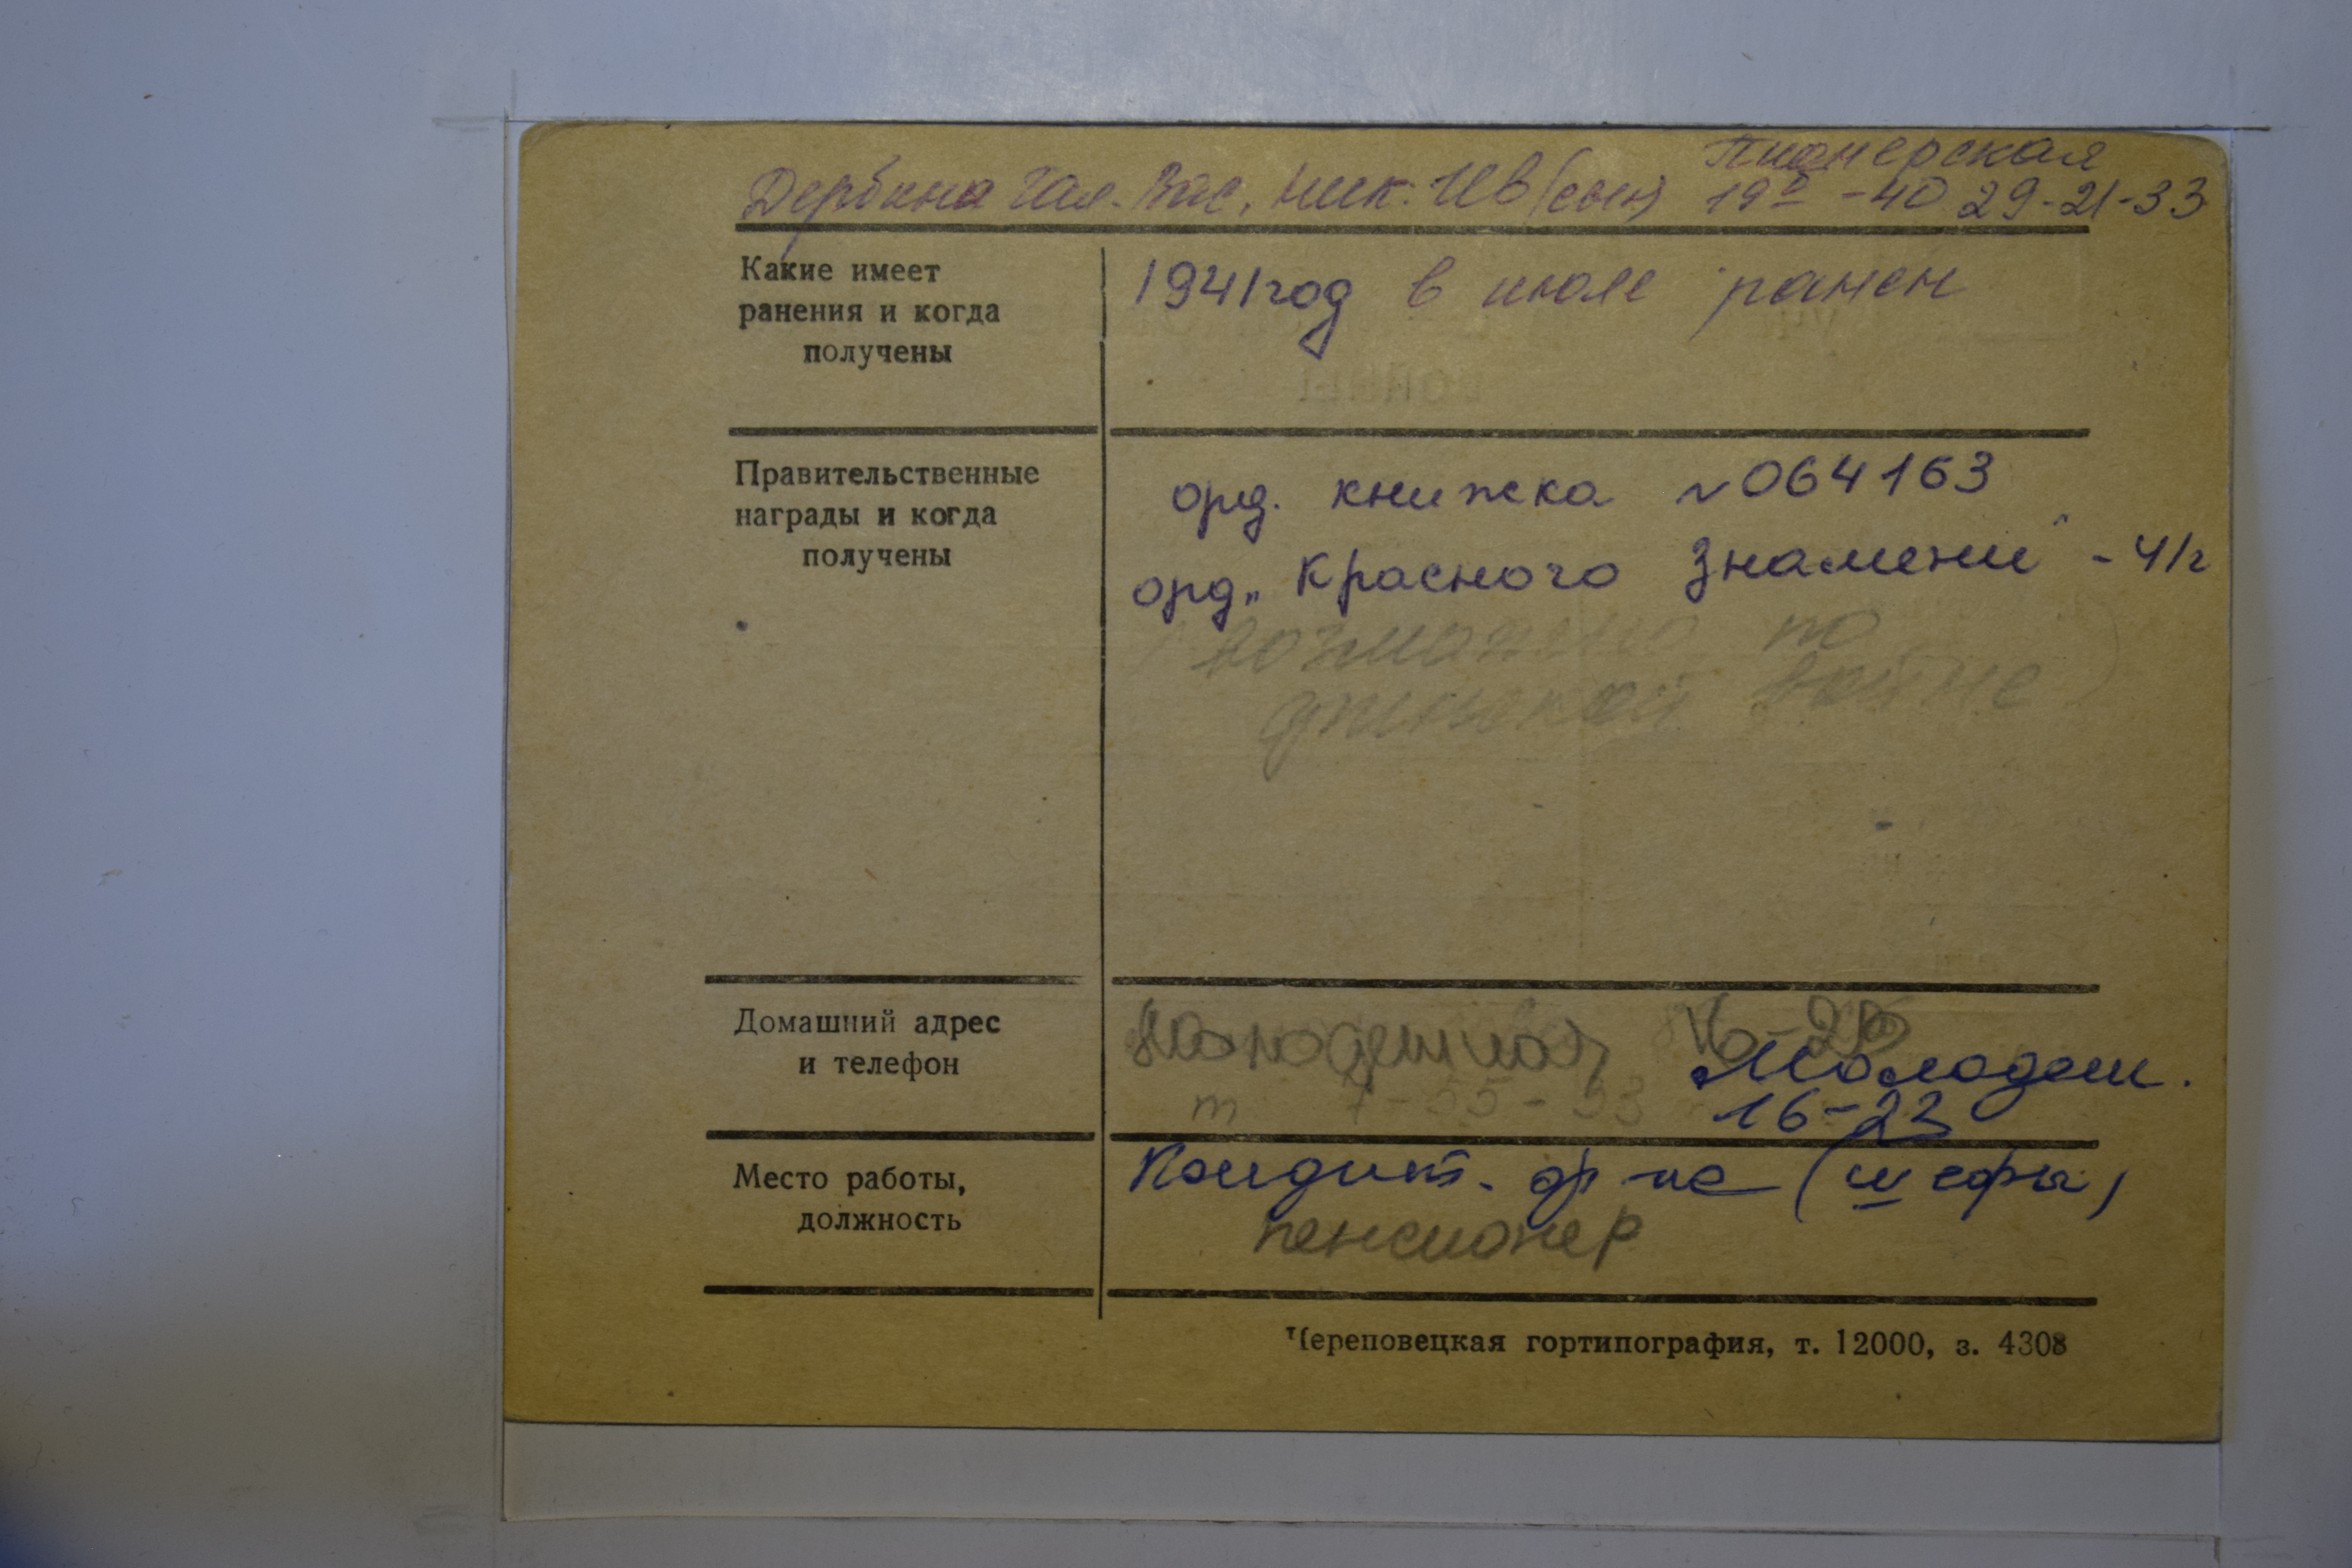 Пионерская
Дербина Гал. Вас. Ник. Ив (сын) 19а - 40 29-21-33
Какие имеет
ранения и когда
получены
1941 год в июле ранен
Правительственные
награды и когда
получены
орд. книжка № 064163
орд „Красного Знамени" - 41г
(возможно по
финской войне)
Домашний адрес
и телефон
Молодежная 16-23
т 7-55-53
Молодеж.
16-23
Место работы,
должность
Кондит. ф-ка (шефы)
пенсионер
Череповецкая гортипография, т. 12000, з. 4308